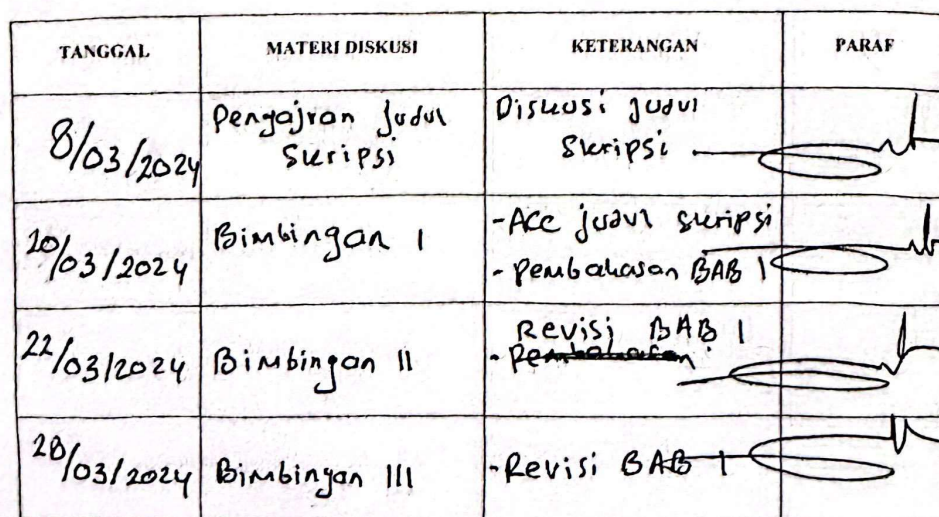 TANGGAL MATERI DISKUSI KETERANGAN PARAF
8/03/2024 Pengajuan Judul Skripsi Diskusi Judul Skripsi
20/03/2024 Bimbingan I -Acc judul skripsi
-Pembahasan BAB I
22/03/2024 Bimbingan II Revisi BAB I
- Pembahasan
28/03/2024 Bimbingan III -Revisi BAB I